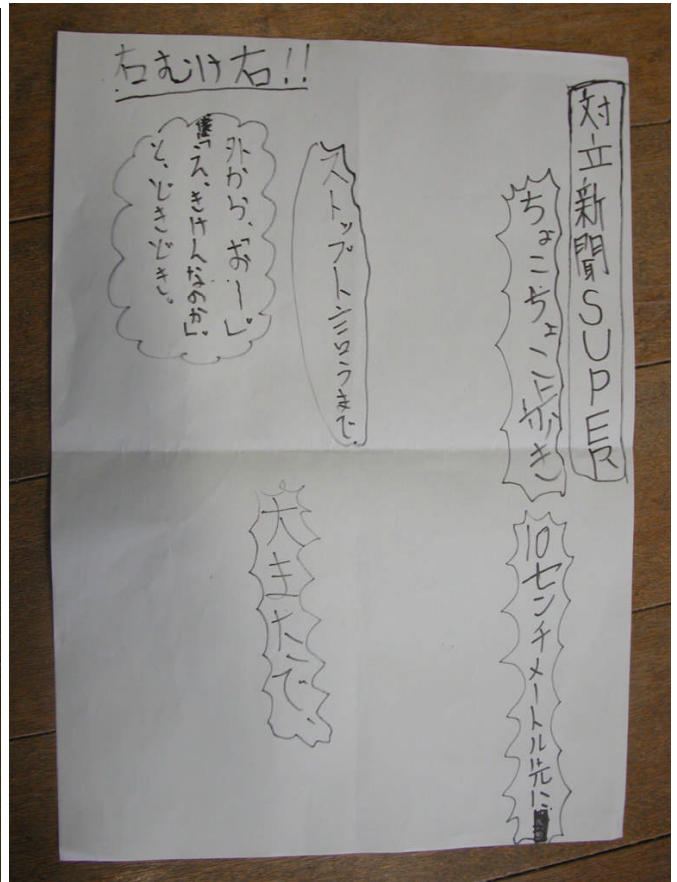 対立新聞SUPER
ちょこちょこ歩き
10センチメートル先に
ストップト言うまで。
大またで、
右むけ右!!
外から、「おー」。
「え、きけんなのか」。
と、どきどき。